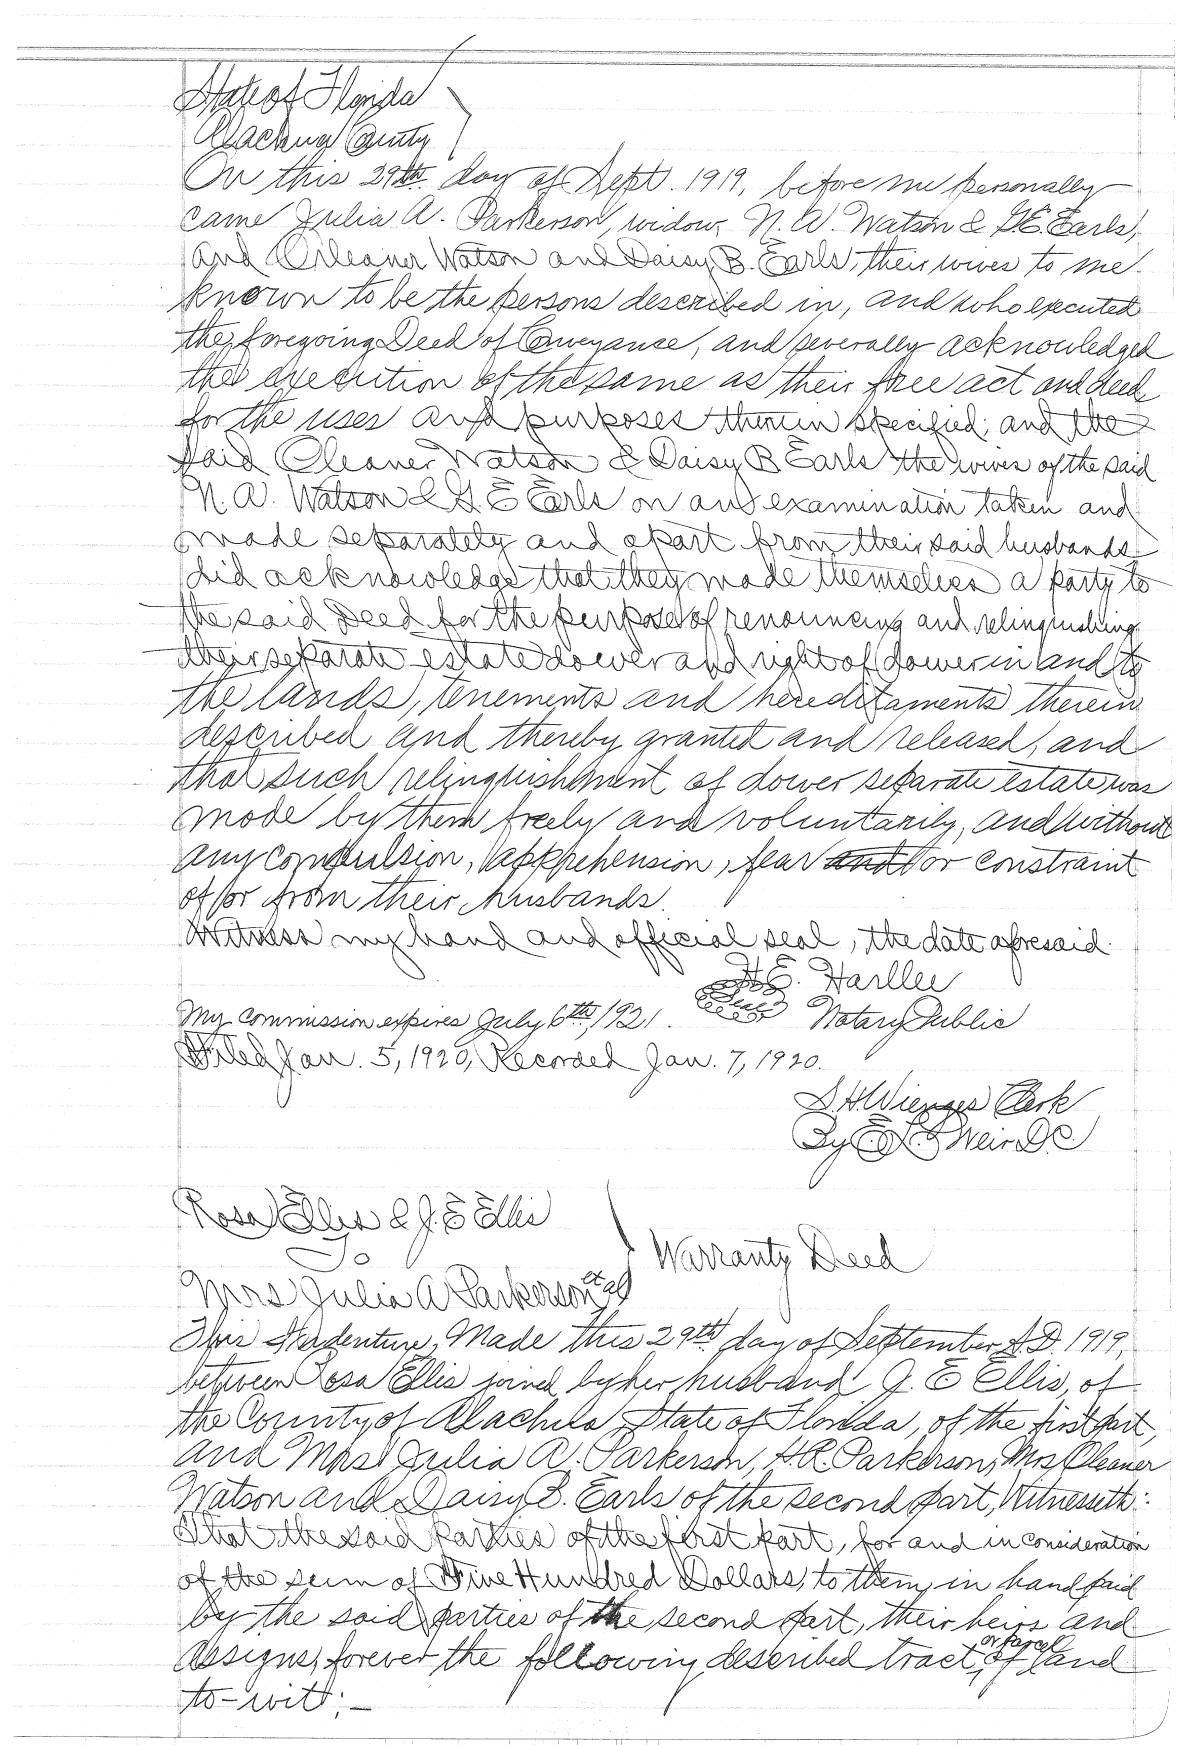 State of Florida
Alachua County
On this 29th day of Sept. 1919, before me personally
came Julia A. Parkerson, widow, N. A. Watson & G. E. Earls,
and Orleaner Watson and Daisy B. Earls, their wives to me
known to be the persons described in, and who executed
the foregoing Deed of Conveyance, and severally acknowledged
the execution of the same as their free act and deed
for the uses and purposes therein specified; and the
said Oleaner Watson & Daisy B Earls the wives of the said
N. A. Watson & G. E Earls on an examination taken and
made separately and apart from their said husbands
did acknowledge that they made themselves a party to
the said Deed for the purpose of renouncing and relinquishing
their separate estate dower and right of dower in and to
the lands, tenements and hereditaments therein
described and thereby granted and released, and
that such relinquishment of dower separate estate was
made by them freely and voluntarily, and without
any compulsion, apprehension, fear and or constraint
of or from their husbands.
Witness my hand and official seal, the date aforesaid.
H. E. Harllee
Seal
My commission expires July 6th, 1921. Notary Public
Filed Jan. 5, 1920, Recorded Jan. 7, 1920.
S. H. Wienges Clerk
By E. L. Weir D.C.
Rosa Ellis & J. E Ellis
To
Warranty Deed
Mrs Julia A Parkerson et al
This Indenture, Made this 29th day of September A.D. 1919,
between Rosa Ellis joined by her husband J. E Ellis, of
the County of Alachua State of Florida, of the first part,
and Mrs Julia A. Parkerson, H. R. Parkerson, Mrs Oleaner
Watson and Daisy B. Earls of the second part, Witnesseth:
That the said parties of the first part, for and in consideration
of the sum of Five Hundred Dollars, to them in hand paid
by the said parties of the second part, their heirs and
assigns, forever the following described tract, or parcel of land
to-wit:—